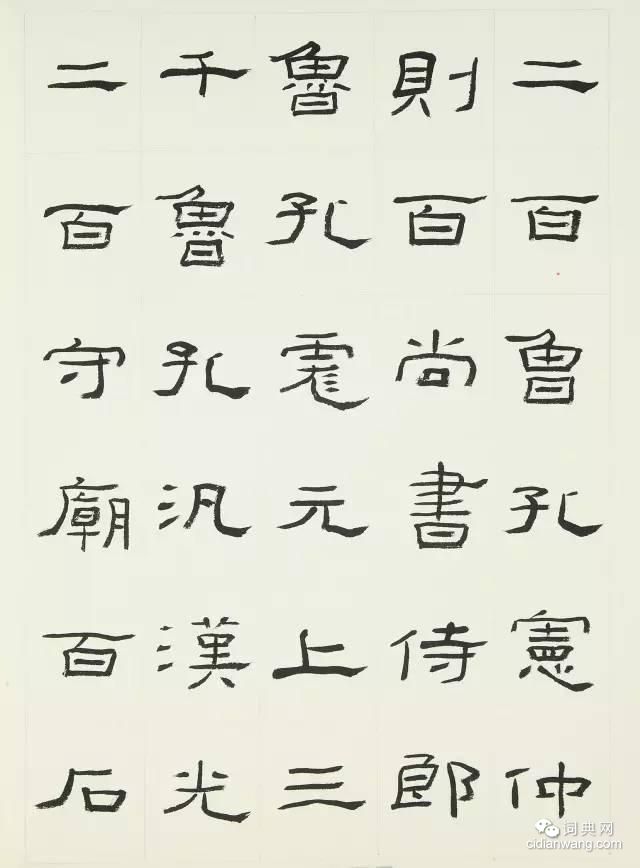 二百魯孔憲仲
則百尚書侍郎
魯孔彪元上三
千魯孔汎漢光
二百守廟百石
词典网
cidianwang.com